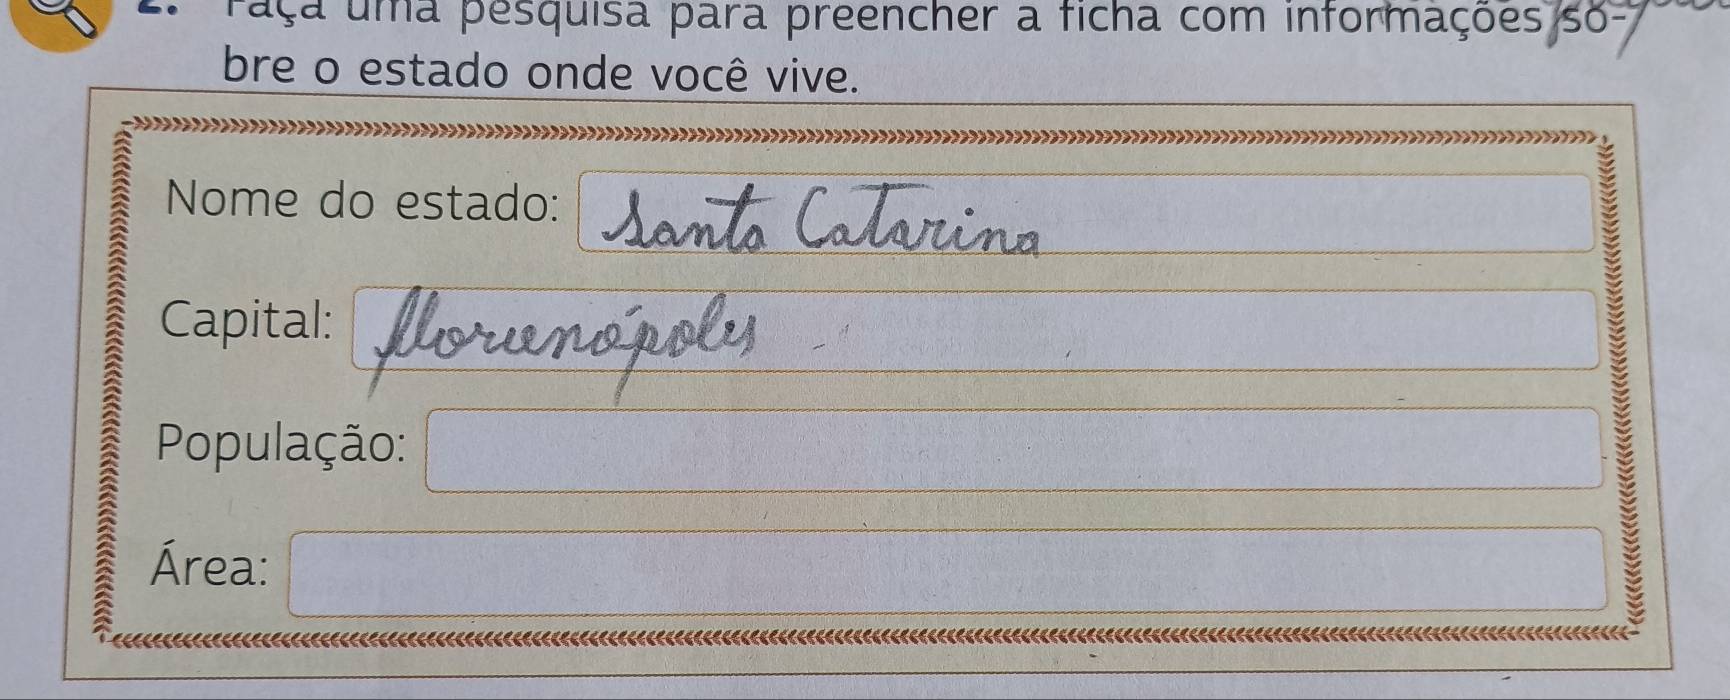 2. Faça uma pesquisa para preencher a ficha com informações so-
bre o estado onde você vive.
Nome do estado: Santa Catarina
Capital: Florianópolis
População:
Área: